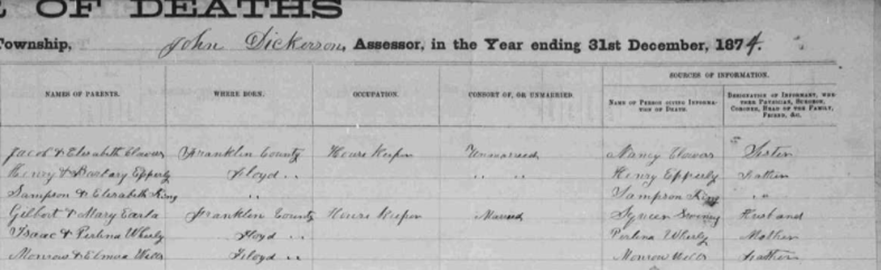 E OF DEATHS
Township, John Dickerson, Assessor, in the Year ending 31st December, 1874.
SOURCES OF INFORMATION.
NAMES OF PARENTS. WHERE BORN. OCCUPATION. CONSORT OF, OR UNMARRIED. NAME OF PERSON GIVING INFORMATION OF DEATH. DESIGNATION OF INFORMANT, WHETHER PHYSICIAN, SURGEON, CORONER, HEAD OF THE FAMILY, FRIEND, &c.
Jacob & Elisabeth Clowers Franklin County House Keeper Unmarried Nancy Clowers Sister
Henry & Epperly Floyd " " " " Henry Epperly Father
Sampson & Elisabeth King " " Sampson King " "
Gilbert & Mary Earls Franklin County House Keeper Married Husband
Isaac & Perlina Wherly Floyd " " Perlina Wherly Mother
Monrow & Elmira Wills Floyd " " Monrow Wills Father